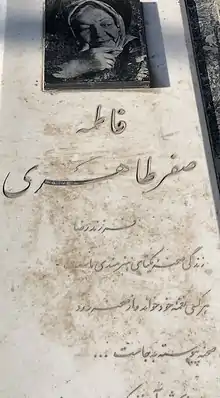 فاطمه
صفرطاهری
فرزند رضا
زندگی صحنه یکتای هنرمندی ماست
هر کسی نغمه خود خواند و از صحنه رود
صحنه پیوسته بجاست ...